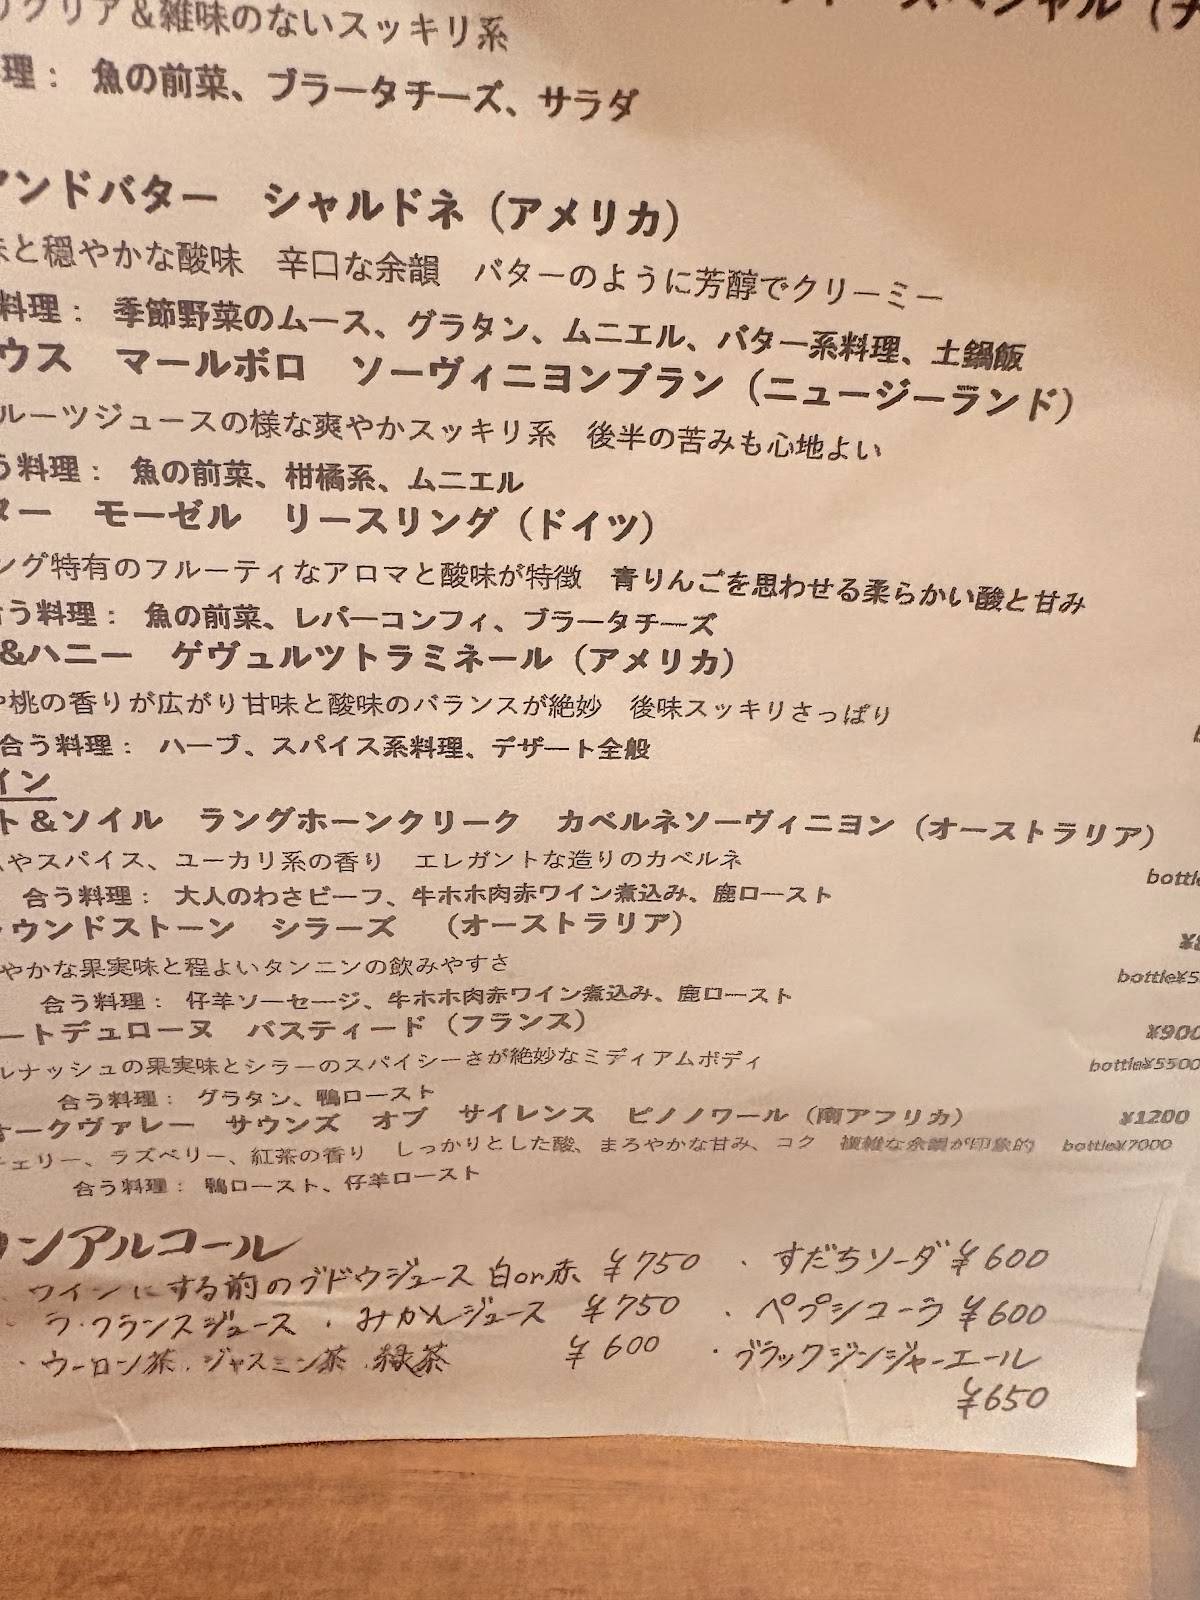 クリア＆雑味のないスッキリ系
理： 魚の前菜、ブラータチーズ、サラダ
アンドバター シャルドネ（アメリカ）
味と穏やかな酸味 辛口な余韻 バターのように芳醇でクリーミー
料理： 季節野菜のムース、グラタン、ムニエル、バター系料理、土鍋飯
ウス マールボロ ソーヴィニヨンブラン（ニュージーランド）
ルーツジュースの様な爽やかスッキリ系 後半の苦みも心地よい
う料理： 魚の前菜、柑橘系、ムニエル
ター モーゼル リースリング（ドイツ）
ング特有のフルーティなアロマと酸味が特徴 青りんごを思わせる柔らかい酸と甘み
合う料理： 魚の前菜、レバーコンフィ、ブラータチーズ
&ハニー ゲヴュルツトラミネール（アメリカ）
や桃の香りが広がり甘味と酸味のバランスが絶妙 後味スッキリさっぱり
合う料理： ハーブ、スパイス系料理、デザート全般
イン
ト＆ソイル ラングホーンクリーク カベルネソーヴィニヨン（オーストラリア）
やスパイス、ユーカリ系の香り エレガントな造りのカベルネ
bottle
合う料理： 大人のわさビーフ、牛ホホ肉赤ワイン煮込み、鹿ロースト
ウンドストーン シラーズ （オーストラリア）
やかな果実味と程よいタンニンの飲みやすさ
bottle¥5
合う料理： 仔羊ソーセージ、牛ホホ肉赤ワイン煮込み、鹿ロースト
ートデュローヌ バスティード（フランス） ¥900
ルナッシュの果実味とシラーのスパイシーさが絶妙なミディアムボディ bottle¥5500
合う料理： グラタン、鴨ロースト
ークヴァレー サウンズ オブ サイレンス ピノノワール（南アフリカ） ¥1200
チェリー、ラズベリー、紅茶の香り しっかりとした酸、まろやかな甘み、コク 複雑な余韻が印象的 bottle¥7000
合う料理： 鴨ロースト、仔羊ロースト
ンアルコール
ワインにする前のブドウジュース 白or赤 ¥750 ・すだちソーダ ¥600
ラ・フランスジュース ・みかんジュース ¥750 ・ペプシコーラ ¥600
・ウーロン茶・ジャスミン茶・緑茶 ¥600 ・ブラックジンジャーエール
¥650